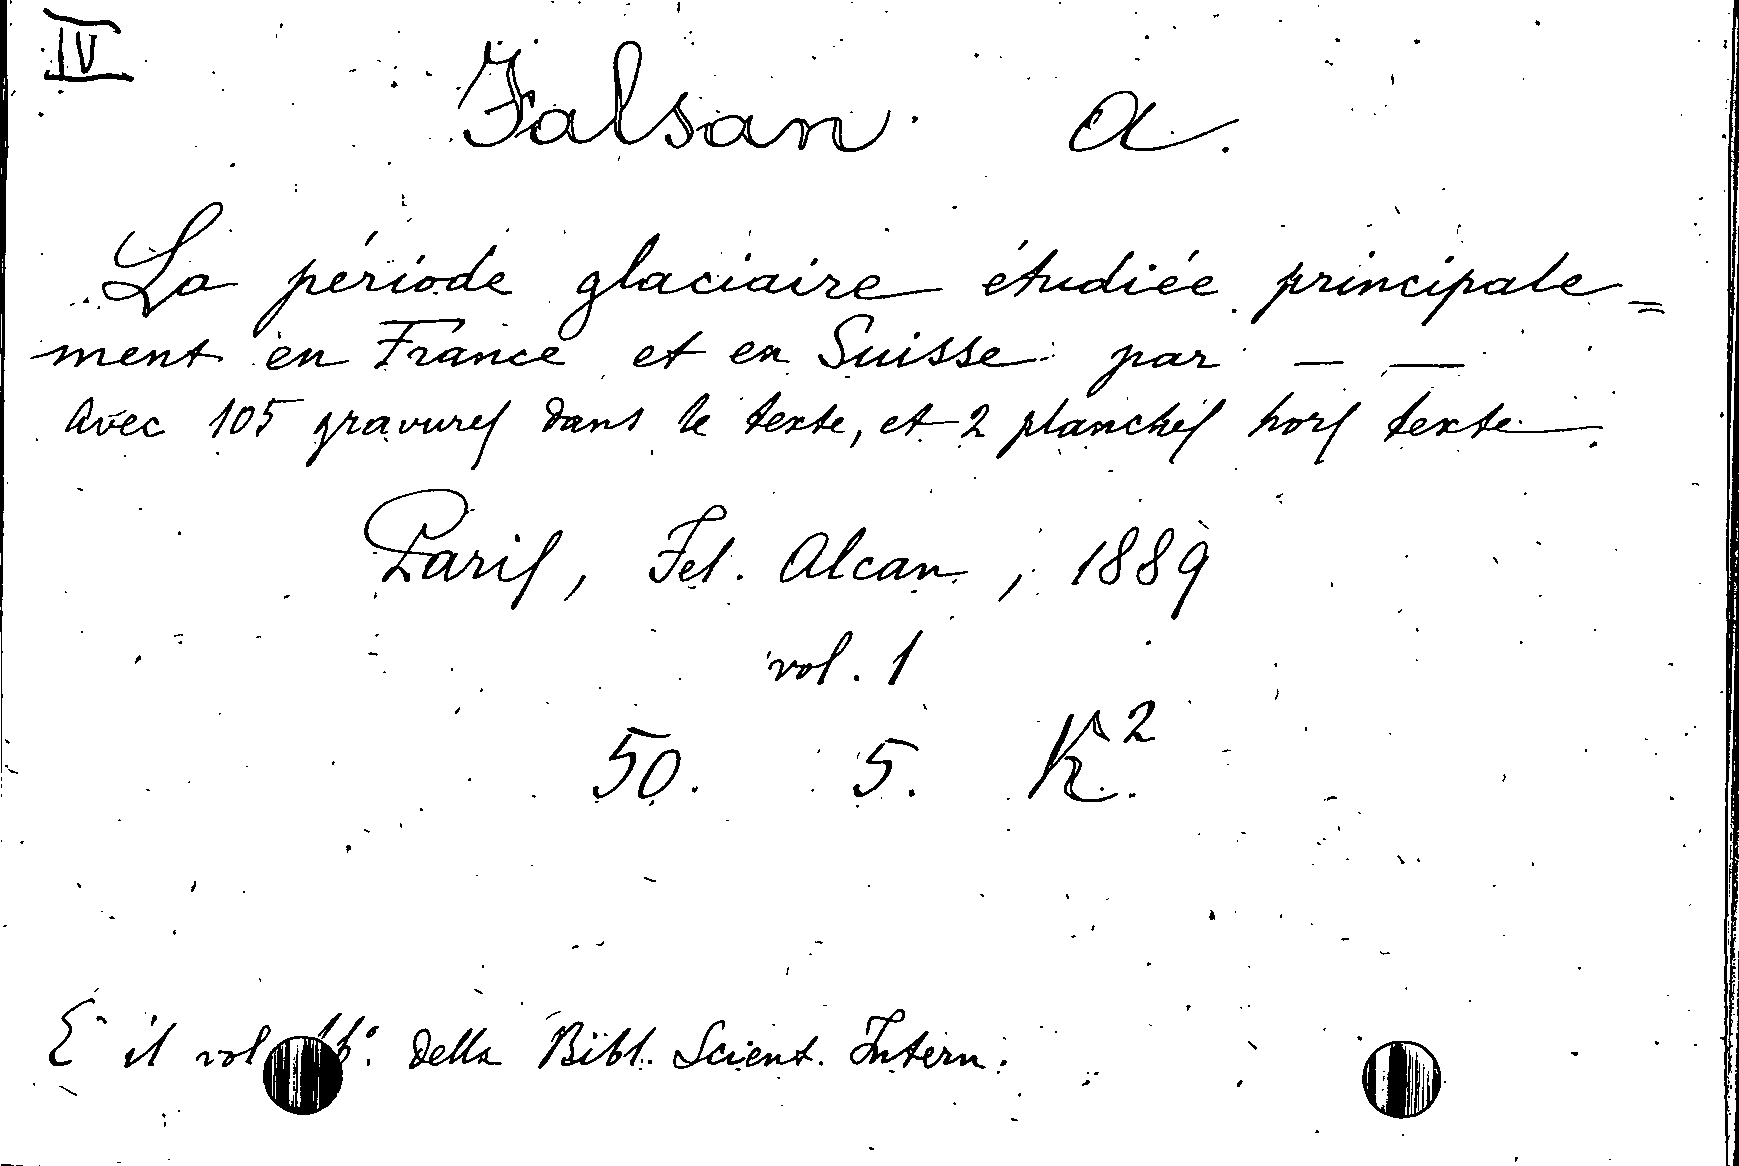 IV
Falsan A.
La période glaciaire étudiée principale=
ment en France et en Suisse par — —
avec 105 gravures dans le texte, et 2 planches hors texte.
Paris, Fel. Alcan, 1889
vol. 1
50. 5. K²
È il vol della Bibl. Scient. Intern.